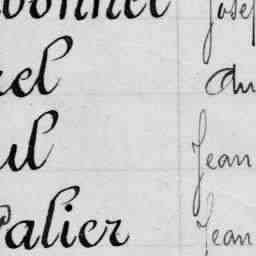 bonnet Josep
rel
ul Jean
Palier Jean